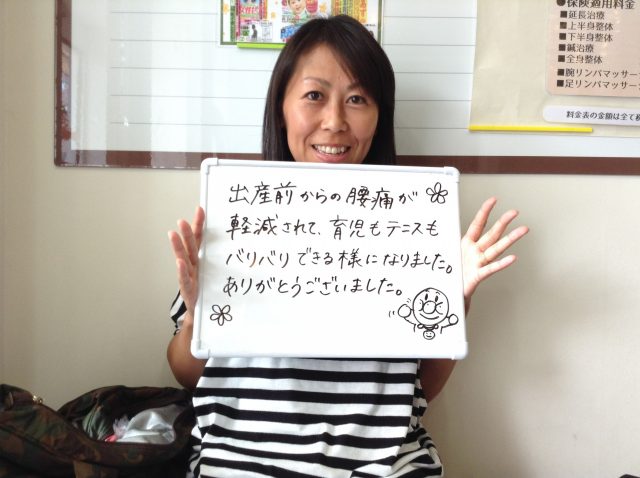 ●保険適用料金
■延長治療
■上半身整体
■下半身整体
■鍼治療
■全身整体
■腕リンパマッサー
■足リンパマッサー
料金表の金額は全て
出産前からの腰痛が
軽減されて、育児もテニスも
バリバリできる様になりました。
ありがとうございました。